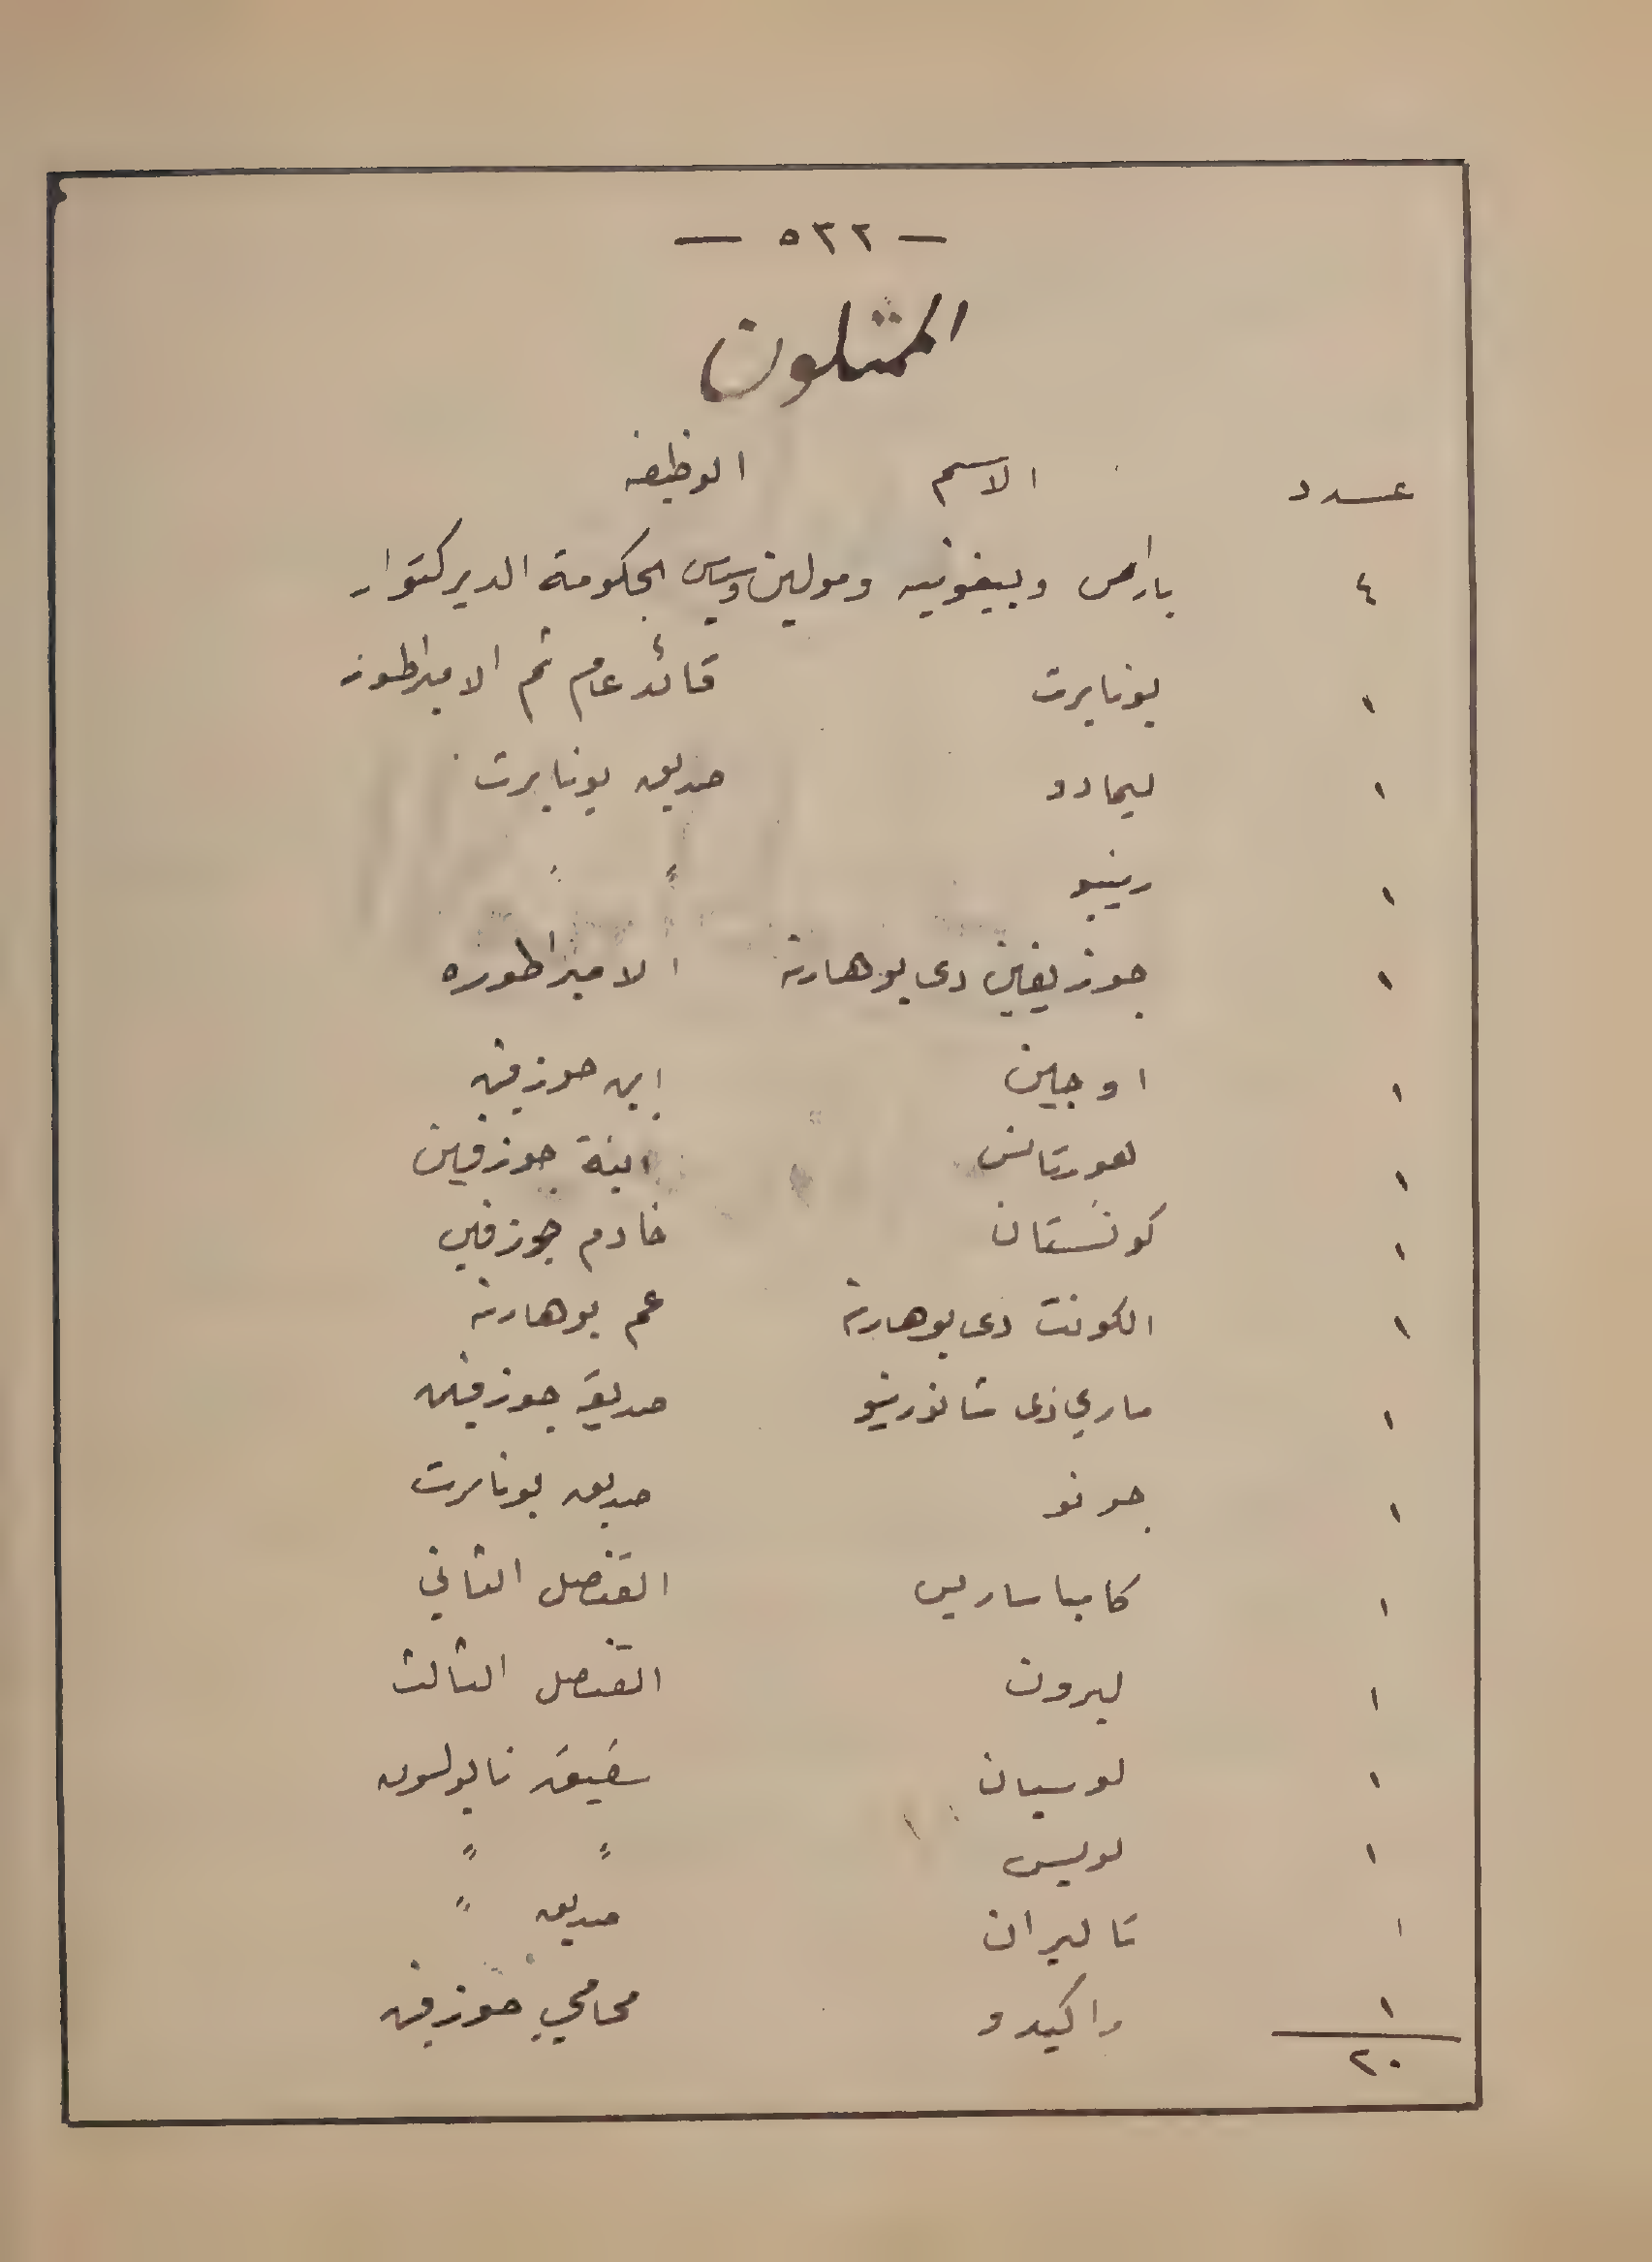 — ٥٣٢ —
الممثلون
عدد الاسم الوظيفه
٤ باراص وبيغونيه ومولين وسيس لحكومة الديركتوار
١ بونابرت قائد عام ثم الامبراطور
١ ليمادو صديق بونابرت
١ رينبو " "
١ جوزيفين دى بوهارنه الامبراطوره
١ اوجين ابن جوزفين
١ هورتانس ابنة جوزفين
١ كونستان خادم جوزفين
١ الكونت دى بوهارنه عم بوهارنه
١ ماري دى شانورينو صديقة جوزفين
١ جونو صديق بونابرت
١ كامباساريس القنصل الثاني
١ لبرون القنصل الثالث
١ لوسيان شقيق نابوليون
١ لويس " "
١ تاليران صديق "
١ راكيدو محامي جوزفين
٢٠